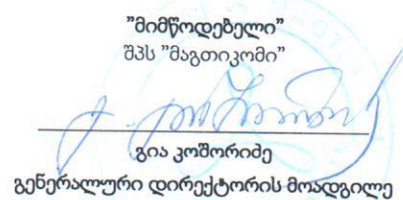 ”მიმწოდებელი”
შპს ”მაგთიკომი”
გია კოშორიძე
გენერალური დირექტორის მოადგილე